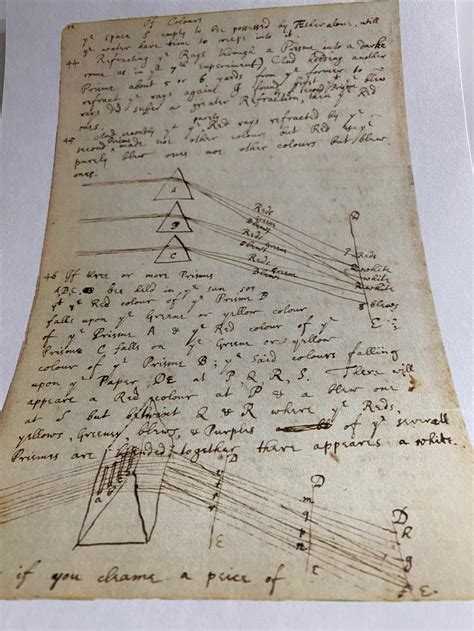 Of Colours
ye space S empty to be possessed by Æther alone, will
ye water have time to creepe into it.
44 Refracting ye Rays through a Prisme into a darke
rome as in ye 7 Experiment) And holding another
Prisme about 5 or 6 yards from ye former to
refract ye rays againe I found first yt ye blew
rays did suffer a greater Refraction by ye second Prisme then ye Red
ones.
45 And secondly yt ye purely Red rays refracted by ye
second Prisme made noe other colours but Red & ye
purely blew ones noe other colours but blew
ones.
A
Reds
greene
Blews
D
B
Reds
greene
Blews
P Reds
Q white
C
Reds
greene
Blews
R white
S blews
E
46 If three or more Prismes
A, B, C, bee held in ye sun soe
yt ye Red colour of ye Prisme B
falls upon ye Greene or yellow colour
of ye Prisme A & ye Red colour of ye
Prisme C falls on ye Greene or yellow
colour of ye Prisme B; ye said colours falling
upon ye Paper DE at P, Q, R, S. There will
appeare a Red colour at P & a blew one
at S but betwixt Q & R where ye Reds,
yellows, Greenes, blews, & Purples of ye severall
Prismes are blended together there appeares a white.
D
E
D
m
q
p
n
E
D
h
g
E
if you claime a peice of